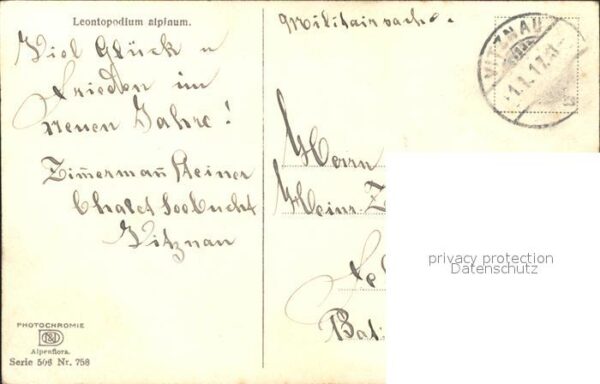 Leontopodium alpinum.
Viel Glück u
Frieden im
neuen Jahre!
Zimmermann Steiner
Chalet Seebucht
Vitznau
PHOTOCHROMIE
Alpenflora.
Serie 506 Nr. 758
Militairsache.
VITZNAU
1.1.17
Herrn
Heinr. Z
Bat
privacy protection
Datenschutz